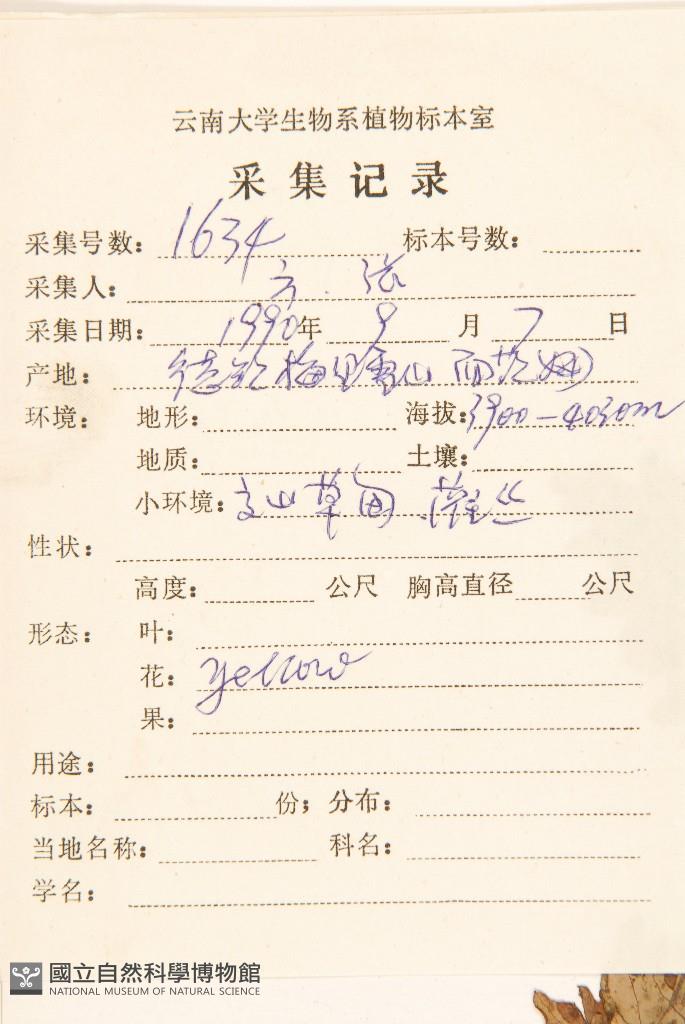 云南大学生物系植物标本室
采集记录
采集号数：1634 标本号数：
采集人：方. 张
采集日期：1990年 9 月 7 日
产地：德钦梅里雪山
环境：地形： 海拔：3900-4030m
地质： 土壤：
小环境：高山草甸
性状：
高度： 公尺 胸高直径 公尺
形态：叶：
花：yellow
果：
用途：
标本： 份；分布：
当地名称： 科名：
学名：
國立自然科學博物館
NATIONAL MUSEUM OF NATURAL SCIENCE